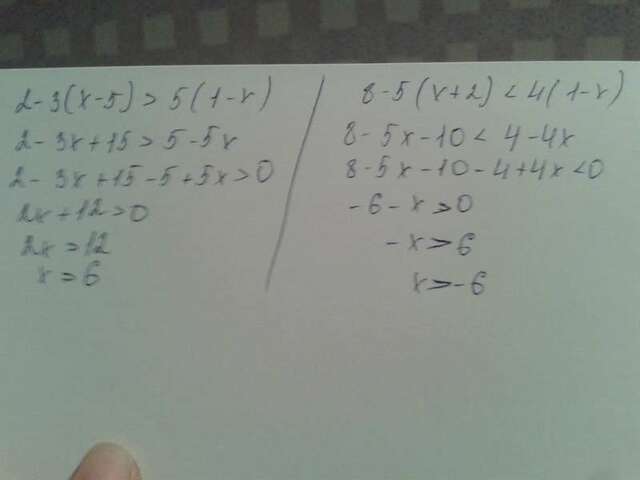 2-3(x-5) > 5(1-x)
2-3x+15 > 5-5x
2-3x+15-5+5x>0
2x+12>0
2x=12
x=6
8-5(x+2) < 4(1-x)
8-5x-10 < 4-4x
8-5x-10-4+4x<0
-6-x>0
-x>6
x>-6